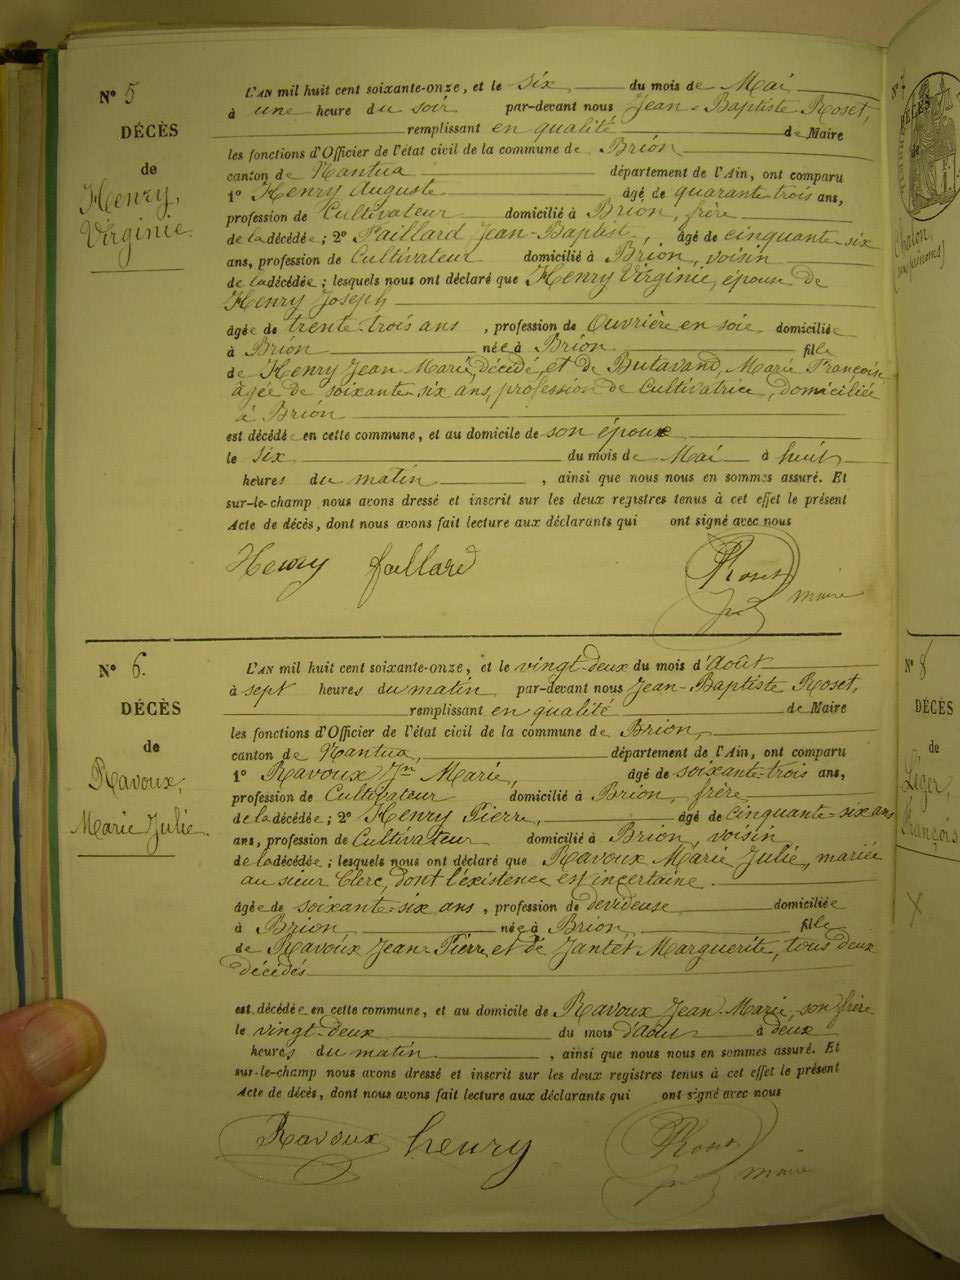 N° 5
DÉCÈS
de
Henry,
Virginie.
L'AN mil huit cent soixante-onze, et le six du mois de Mai
à une heure du soir par-devant nous Jean-Baptiste Roset,
remplissant en qualité de Maire
les fonctions d'Officier de l'état civil de la commune de Brion
canton de Nantua département de l'Ain, ont comparu
1° Henry Auguste âgé de quarante-trois ans,
profession de Cultivateur domicilié à Brion, frère
de la décédée; 2° Paillard Jean-Baptist, âgé de cinquante-six
ans, profession de Cultivateur domicilié à Brion, voisin
de la décédée; lesquels nous ont déclaré que Henry Virginie, épouse de
Henry Joseph
âgée de trente-trois ans, profession de Ouvrière en soie domiciliée
à Brion née à Brion fille
de Henry Jean Marie, décédé, et de Butavand, Marie Françoise
âgée de soixante-six ans, profession de Cultivatrice, domiciliée
à Brion
est décédée en cette commune, et au domicile de son époux
le six du mois de Mai à huit
heures du matin, ainsi que nous nous en sommes assuré. Et
sur-le-champ nous avons dressé et inscrit sur les deux registres tenus à cet effet le présent
Acte de décès, dont nous avons fait lecture aux déclarants qui ont signé avec nous
Henry paillard Roset maire
N° 6.
DÉCÈS
de
Ravoux,
Marie Julie.
L'AN mil huit cent soixante-onze, et le vingt-deux du mois d'Août
à sept heures du matin par-devant nous Jean-Baptiste Roset,
remplissant en qualité de Maire
les fonctions d'Officier de l'état civil de la commune de Brion,
canton de Nantua, département de l'Ain, ont comparu
1° Ravoux Jn Marie, âgé de soixante-trois ans,
profession de Cultivateur domicilié à Brion, frère
de la décédée; 2° Henry Pierre, âgé de cinquante-six ans
ans, profession de Cultivateur domicilié à Brion, voisin
de la décédée; lesquels nous ont déclaré que Ravoux Marie Julie, mariée
au sieur Clerc, dont l'éxistence est incertaine.
âgée de soixante-six ans, profession de devideuse domiciliée
à Brion née à Brion, fille
de Ravoux Jean-Pierre, et de Jantet Marguerite, tous deux
décédés
est décédée en cette commune, et au domicile de Ravoux Jean-Marie, son frère
le vingt-deux du mois d'Août à deux
heures du matin, ainsi que nous nous en sommes assuré. Et
sur-le-champ nous avons dressé et inscrit sur les deux registres tenus à cet effet le présent
Acte de décès, dont nous avons fait lecture aux déclarants qui ont signé avec nous
Ravoux henry Roset maire
N° 8
DÉCÈS
de
Léger,
François